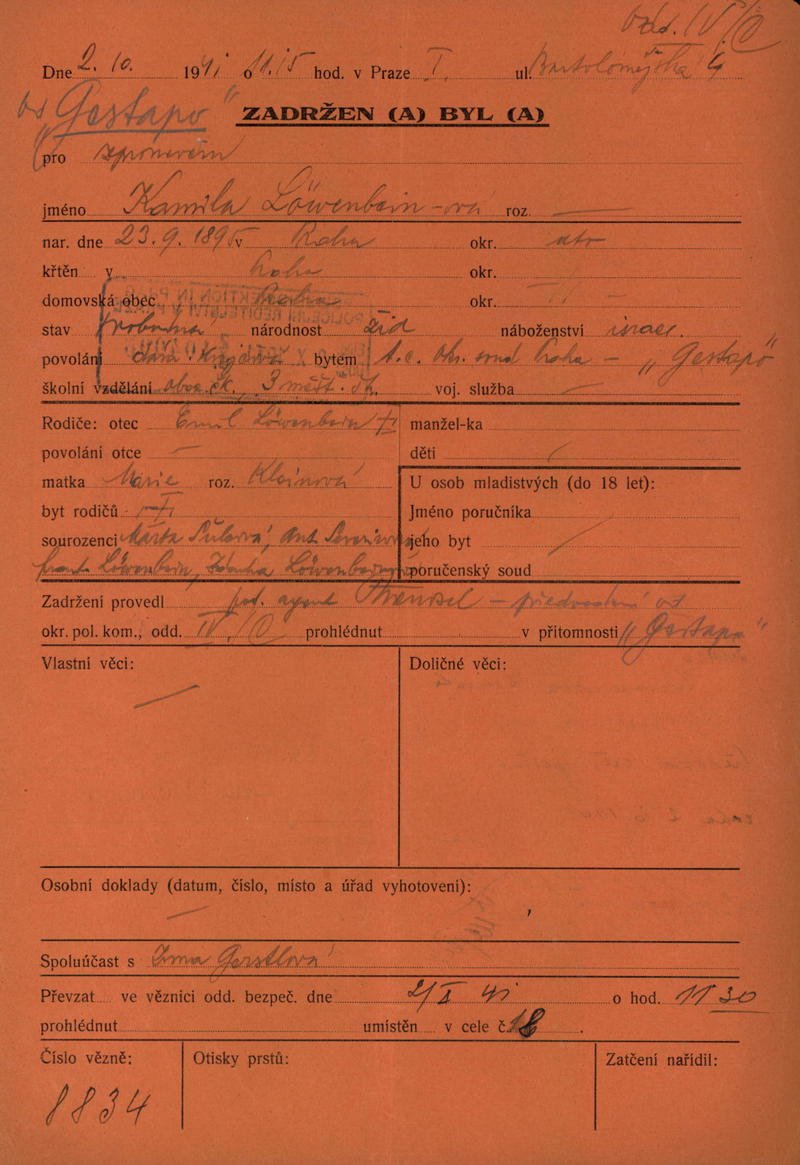 odd. IV/C
Dne 2. 10. 1941 o 11.15 hod. v Praze I. ul. Bartolomějská 4
"Gestapo" ZADRŽEN (A) BYL (A)
pro
jméno Kamila Löwenbein-ová roz. —
nar. dne 23. 9. 1895 v Praha okr. dto
křtěn v Praha okr.
domovská obec Praha okr.
stav národnost žid náboženství israel.
povolání bytem t. č. Praha – "Gestapo"
školní vzdělání obec. šk. 3 měšť. šk. voj. služba —
Rodiče: otec Emil Löwenbein † manžel-ka
povolání otce — děti
matka Marie roz. Kleinová
U osob mladistvých (do 18 let):
byt rodičů †
Jméno poručníka
sourozenci Marta Ant.
jeho byt
Frant. Löwenbein, Löwenbein
poručenský soud
Zadržení provedl pol. agent
okr. pol. kom., odd. IV./C prohlédnut v přítomnosti "Gestapo"
Vlastní věci: Doličné věci:
Osobní doklady (datum, číslo, místo a úřad vyhotovení):
Spoluúčast s Irma Gerstlová
Převzat ve věznici odd. bezpeč. dne 2/X 41 o hod. 11 30
prohlédnut umístěn v cele č. 18.
Číslo vězně: Otisky prstů: Zatčení nařídil:
8834